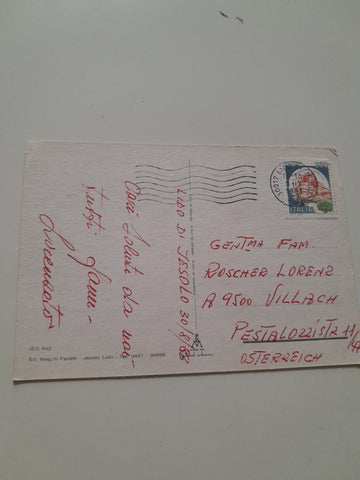 LIDO DI JESOLO 30/8/88
Cari saluti da noi
tutti Fam-
GENTMA FAM.
ROSCHER LORENZ
A 9500 VILLACH
PESTALOZZISTR 11/
ÖSTERREICH
ITALIA
30017 LI
JES 842
Ed. Mag.ni Favalli - Jesolo Lido - Tel. 0421 - 90666